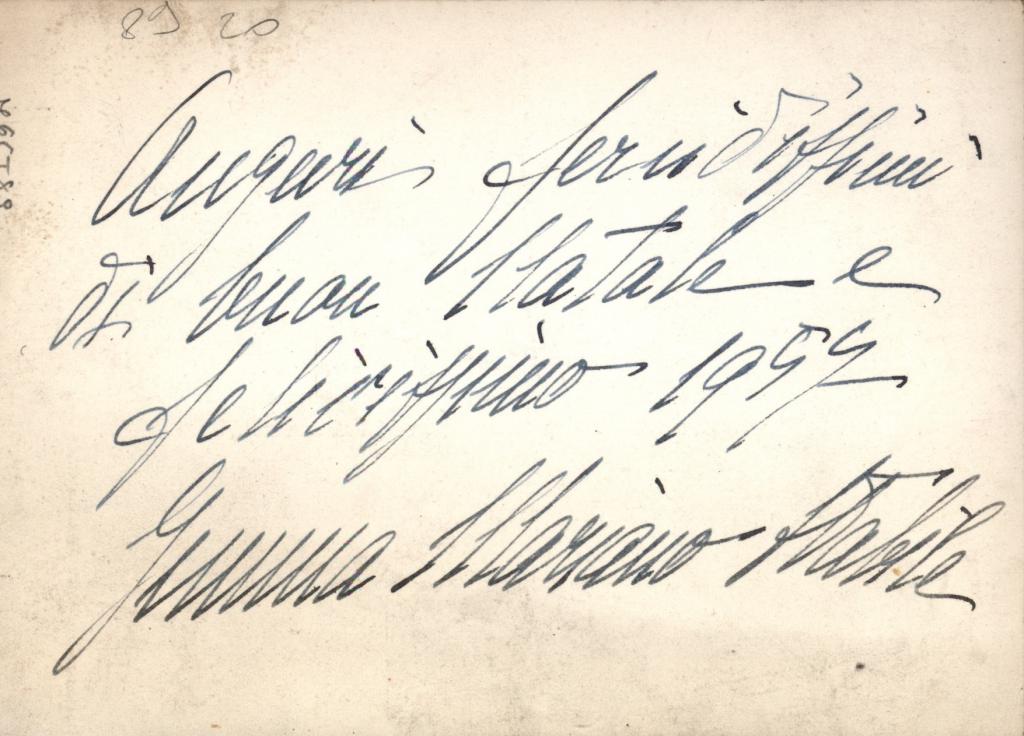 89 20
Auguri fervidissimi
di buon Natale e
felicissimo 1957
Gemma Mariano Stabile